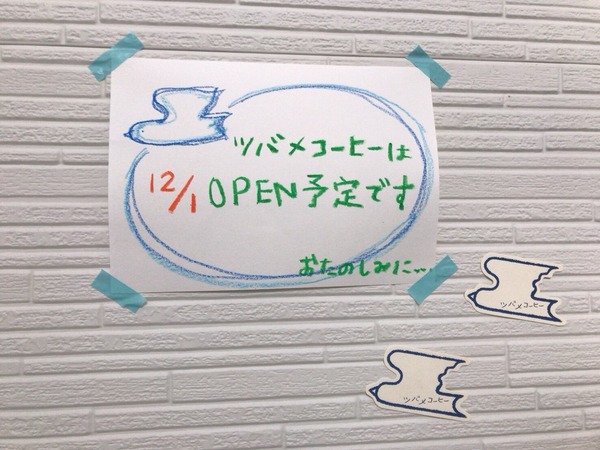 ツバメコーヒーは
12/1 OPEN予定です
おたのしみに…
ツバメコーヒー
ツバメコーヒー